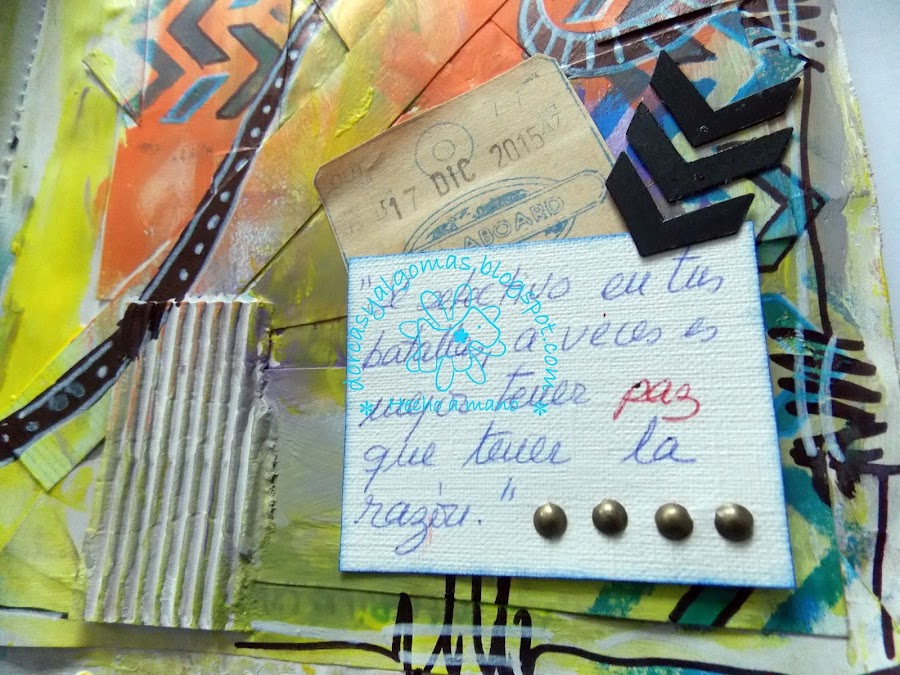 17 DIC 2015
ABOARD
"Se selectivo en tus
batallas, a veces es
mejor tener paz
que tener la
razón."
doreasyalgomas.blogspot.com
* Hecho a mano *